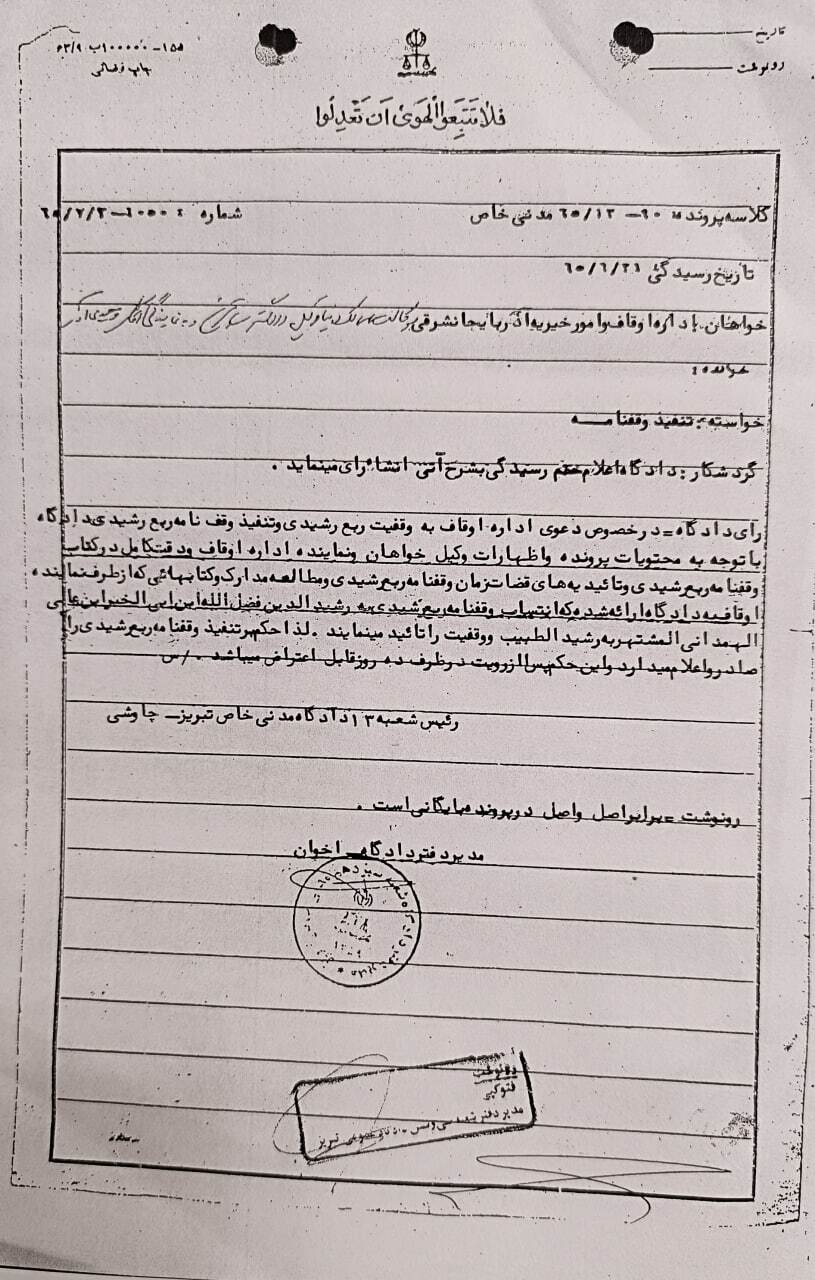 تاریخ
رونوشت
۱۵۵-۱۰۰۰۰۰ب ۶۳/۹
چاپ قضائی
فلا تتبعوا الهوی ان تعدلوا
کلاسه پرونده ۹۰- ۶۵/۱۳ مدنی خاص
شماره : ۶۵/۷/۳-۶۰۵۵
تاریخ رسیدگی ۶۵/۶/۳۱
خواهان. اداره اوقاف و امور خیریه آذربایجانشرقی
خوانده :
خواسته : تنفیذ وقفنامه
گردشکار : دادگاه اعلام ختم رسیدگی بشرح آتی انشاء رای مینماید .
رای دادگاه = در خصوص دعوی اداره اوقاف به وقفیت ربع رشیدی و تنفیذ وقف نامه ربع رشیدی دادگاه
با توجه به محتویات پرونده و اظهارات وکیل خواهان و نماینده اداره اوقاف و دقت کامل در کتاب
وقفنامه ربع رشیدی و تائیدیه های قضات زمان وقفنامه ربع رشیدی و مطالعه مدارک و کتابهائی که از طرف نماینده
اوقاف به دادگاه ارائه شده که انتساب وقفنامه ربع رشیدی به رشید الدین فضل الله ابن ابی الخیر ابن عالی
الهمدانی المشتهر به رشید الطبیب و وقفیت را تائید مینمایند . لذا حکم بر تنفیذ وقفنامه ربع رشیدی را
صادر و اعلام میدارد و این حکم پس از رویت در ظرف ده روز قابل اعتراض میباشد . /س
رئیس شعبه ۱۳ دادگاه مدنی خاص تبریز - چاوشی
رونوشت = برابر اصل واصل در پرونده بایگانی است .
مدیر دفتر دادگاه - اخوان
رونوشت
فتوکپی
مدیر دفتر
تبریز